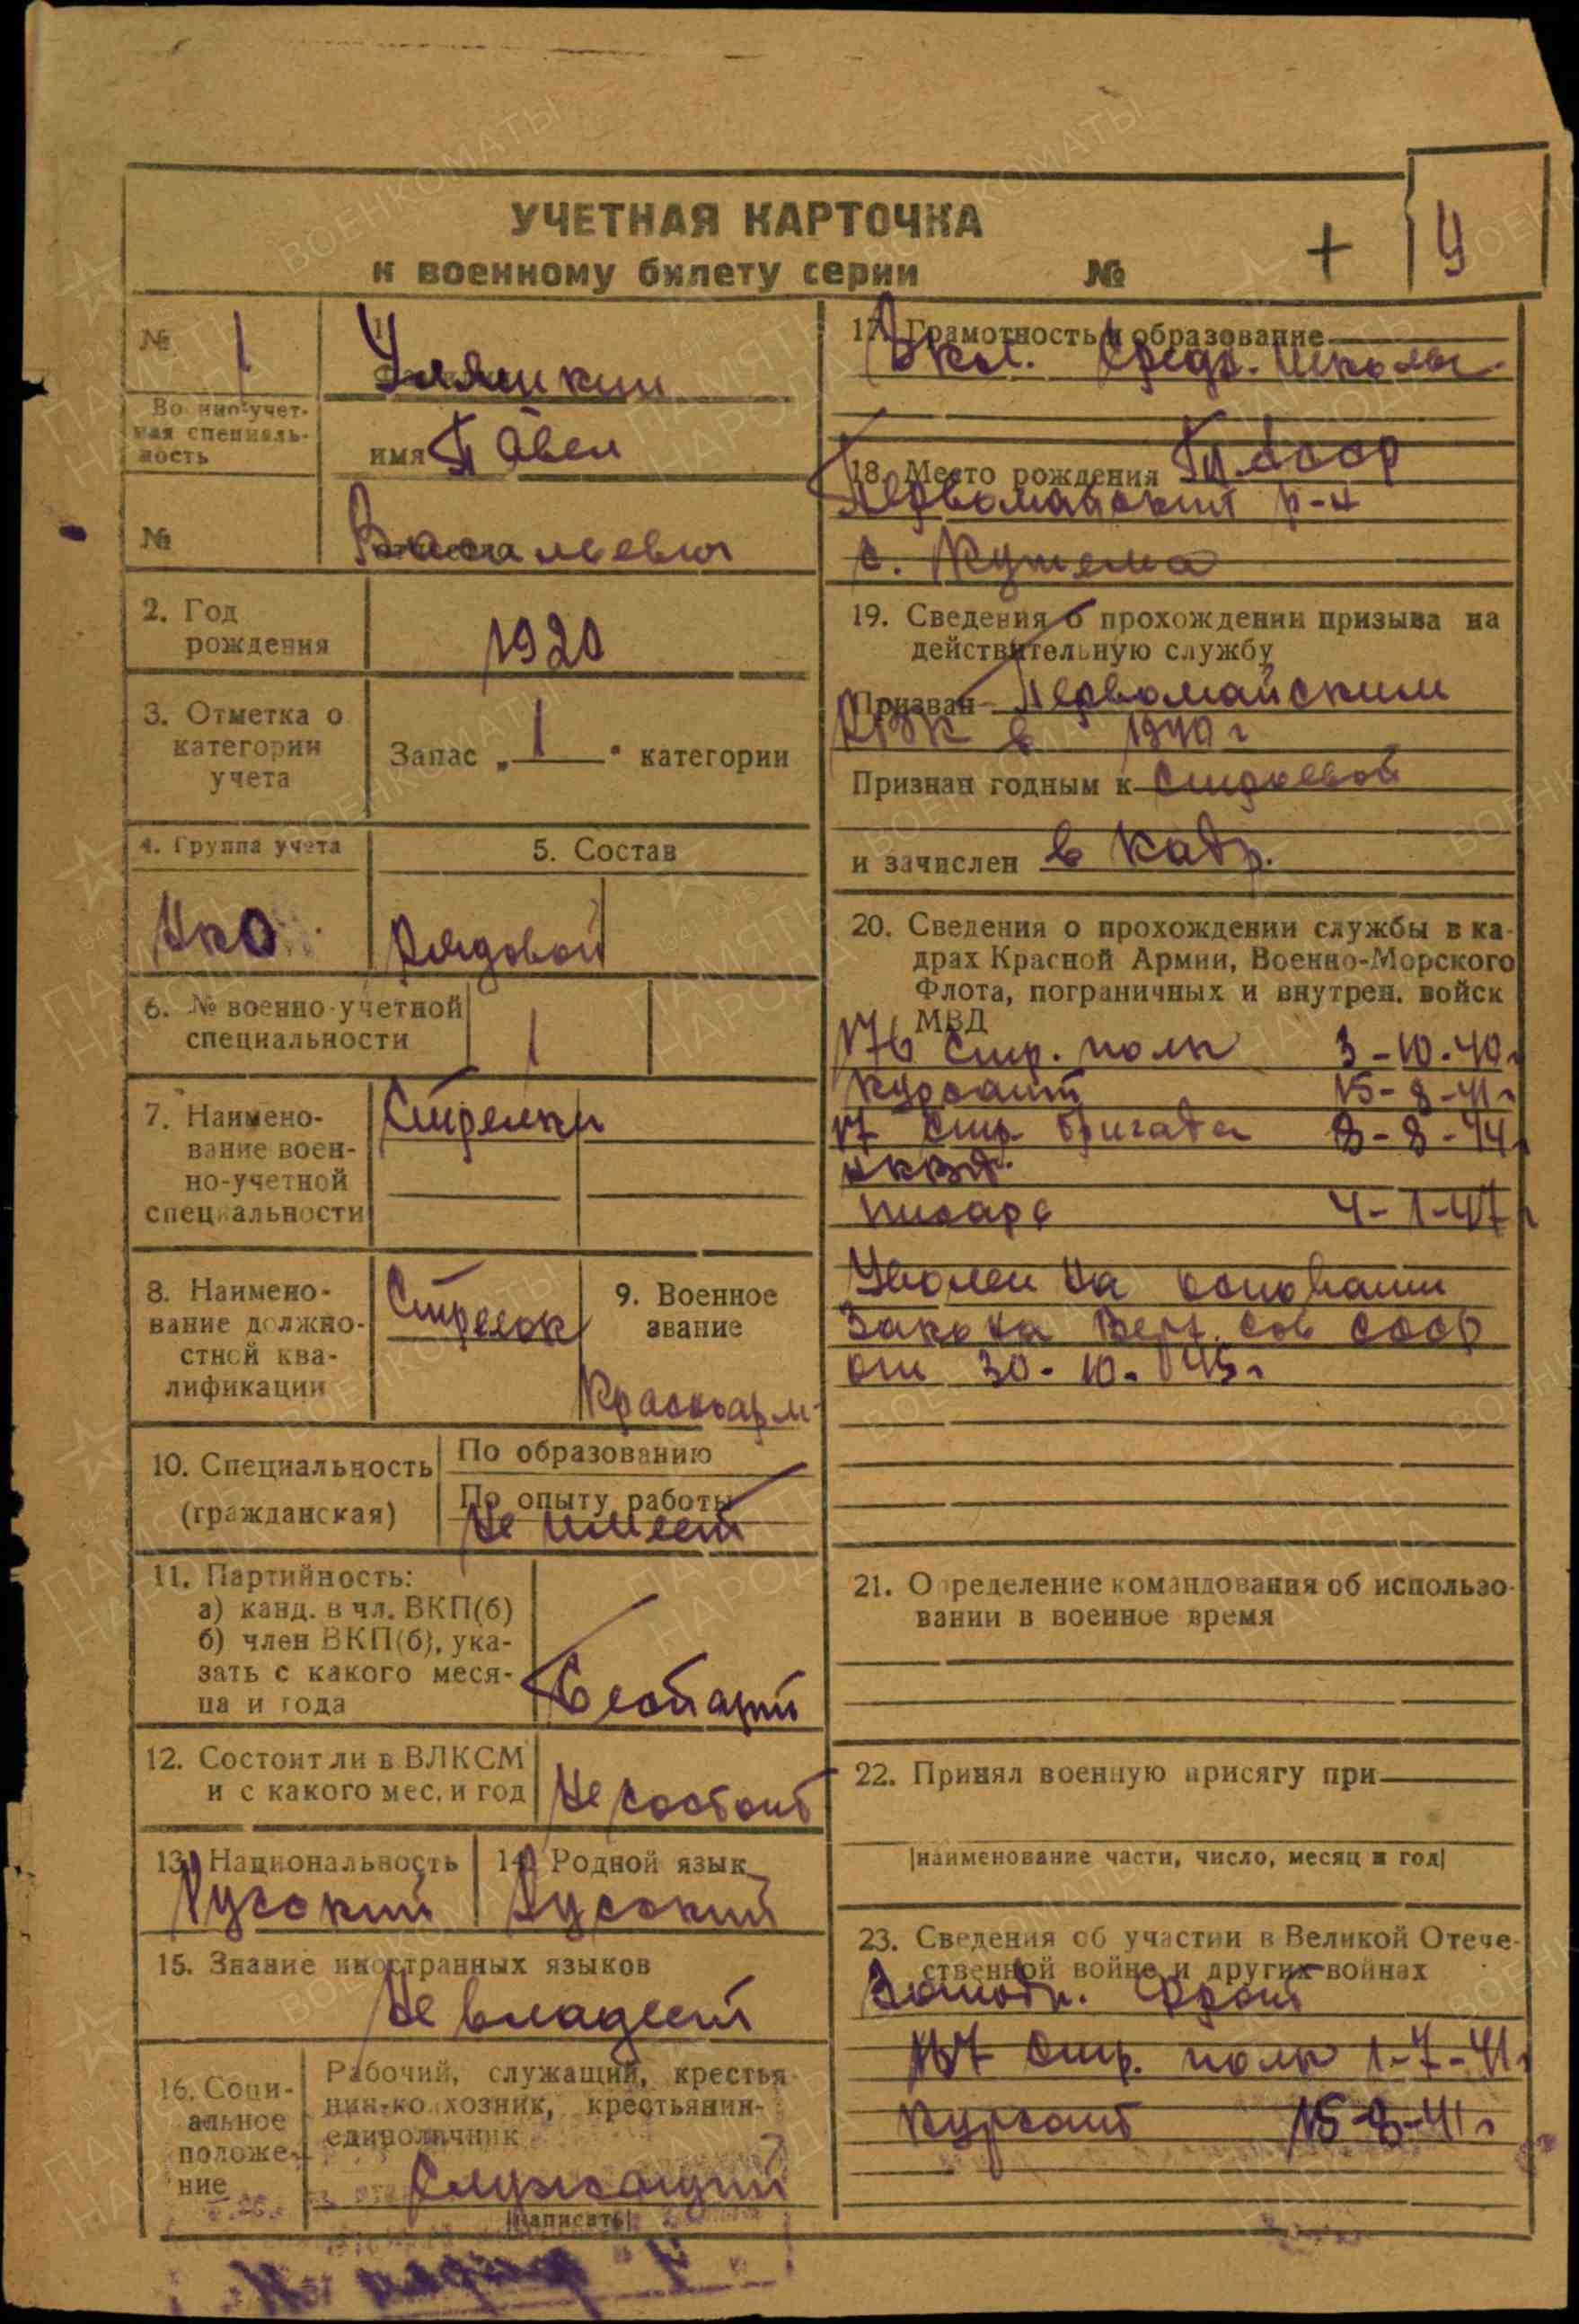 УЧЕТНАЯ КАРТОЧКА
к военному билету серии №
+ У
№ 1
Во нно-учет-
ная специаль-
ность
№
1
Улямкин
имя Павел
Васильевич
2. Год
рождения
1920
3. Отметка о
категории
учета
Запас „ 1 " категории
4. Группа учета
РКА
5. Состав
Рядовой
6. № военно-учетной
специальности
1
7. Наимено-
вание воен-
но-учетной
специальности
Стрелки
8. Наимено-
вание должно-
стной ква-
лификации
Стрелок
9. Военное
звание
Красноарм
10. Специальность
(гражданская)
По образованию
По опыту работы
Не имеет
11. Партийность:
а) канд. в чл. ВКП(б)
б) член ВКП(б), ука-
зать с какого меся-
ца и года
Беспарт
12. Состоит ли в ВЛКСМ
и с какого мес. и год
Не состоит
13. Национальность
Русский
14. Родной язык
Русский
15. Знание иностранных языков
Не владеет
16. Соци-
альное
положе-
ние
Рабочий, служащий, крестья
нин-ко хозник, крестьянин-
единоличник
Служащий
|написать|
17. Грамотность и образование
кл. средн. школы
18. Место рождения
Первомайский р-н
с.
19. Сведения о прохождении призыва на
действительную службу
Призван Первомайским
РВК в 1940 г
Признан годным к строевой
и зачислен в кадр.
20. Сведения о прохождении службы в ка-
драх Красной Армии, Военно-Морского
Флота, пограничных и внутрен. войск
МВД
176 стр. полк 3-10-40г
курсант 15-8-41г
17 стр. бригада 8-8-44г
НКВД.
писарь 4-1-47г
Уволен на основании
Закона Верх. Сов СССР
от
21. О ределение командования об использо-
вании в военное время
22. Принял военную присягу при
|наименование части, число, месяц и год|
23. Сведения об участии в Великой Отече-
ственной войне и других войнах
Западн. фронт
стр. полк 1-7-41г
Курсант 15-8-41г